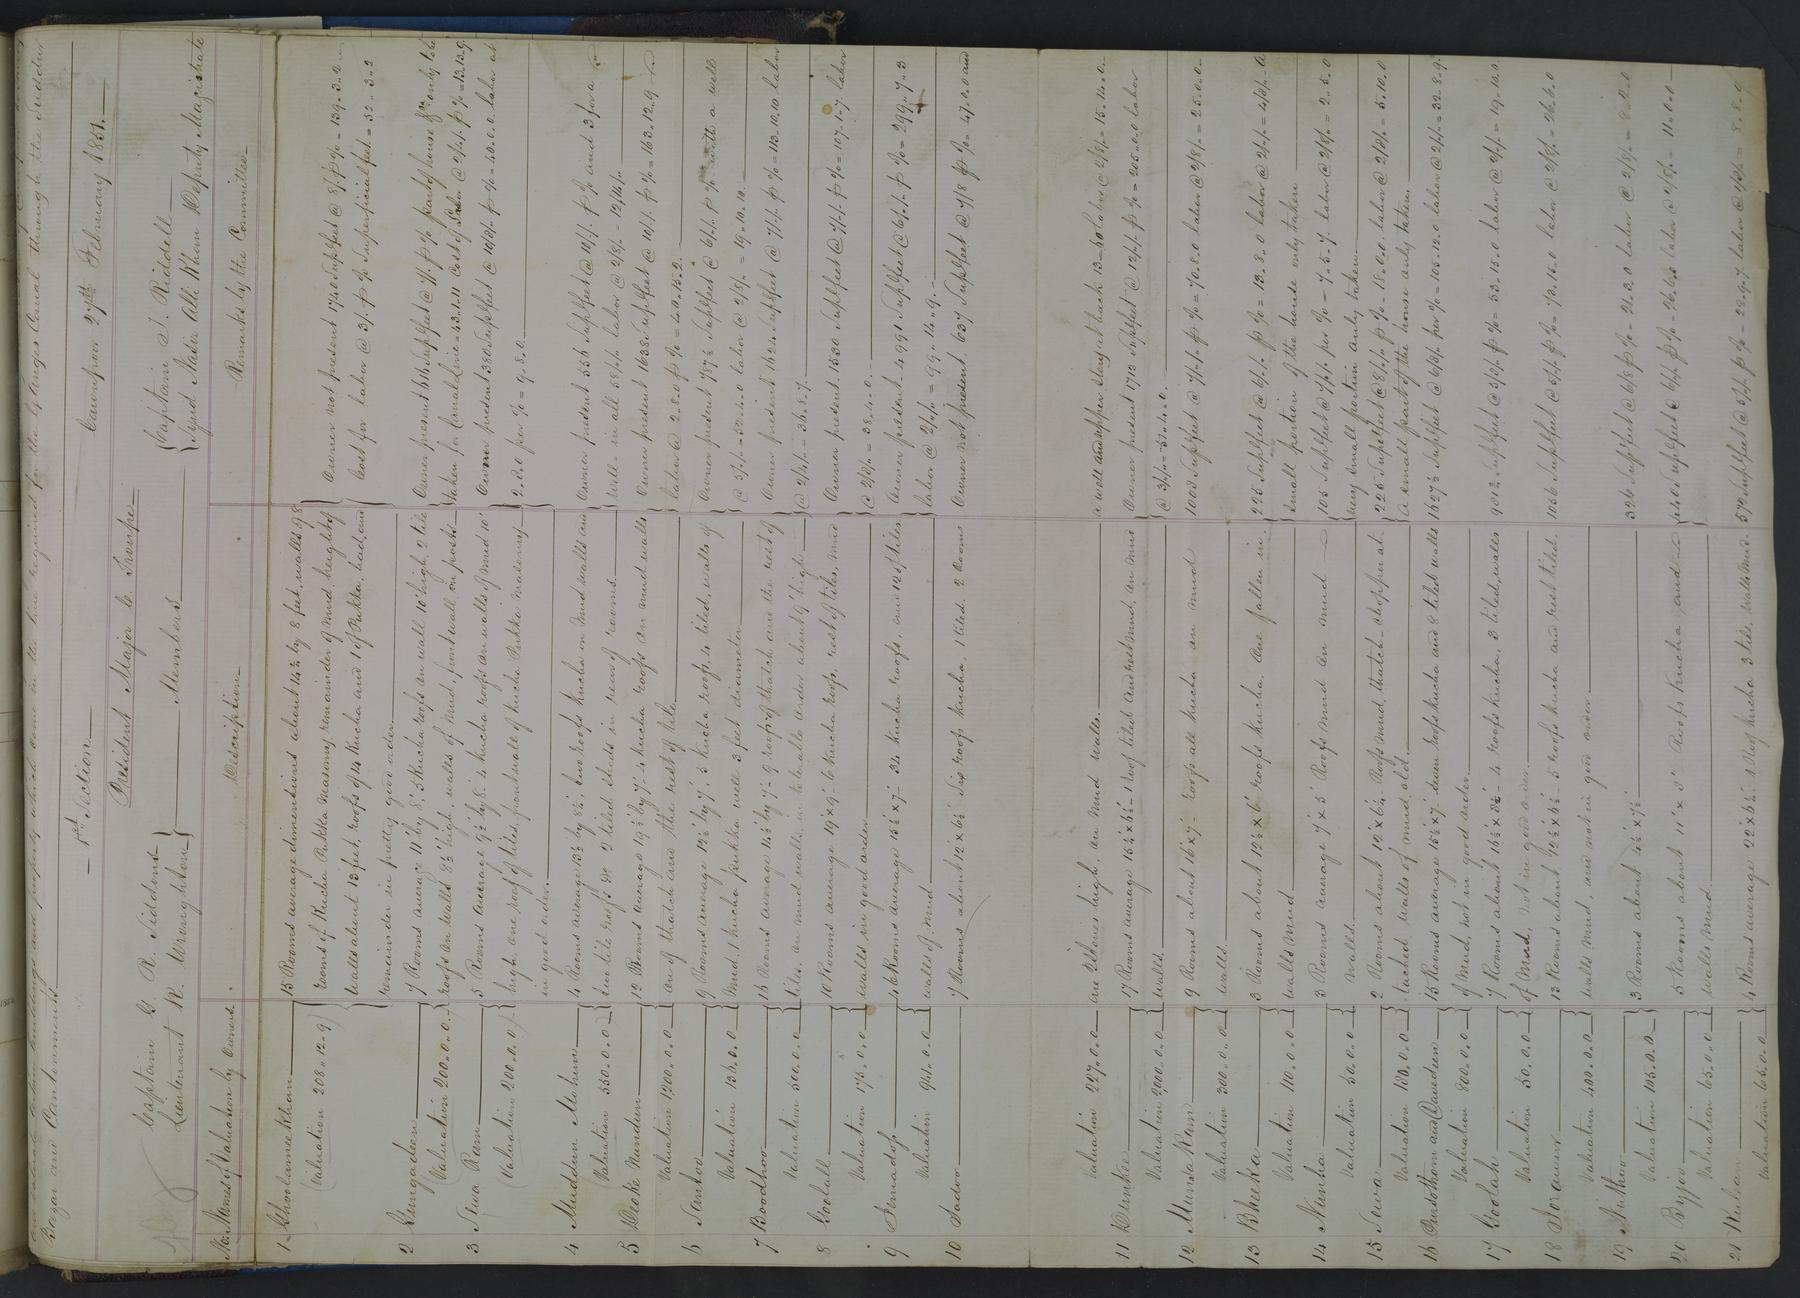 and valuate certain buildings and property which come in the line required for the Ganges Canal through the Suddur
Bazar and Cantonments
Cawnpoor 27th February 1851.
1st Section
President Major C. Troup
Captain G. R. Siddons
Lieutenant R. Wroughton
Members
Captain J. Riddell
Syud Nasir Alli Khan Deputy Magistrate
No. Names & Valuation by Owners.
Description
Remarks by the Committee
1 Ghoolamee Khan
Valuation 208.12.9
15 Rooms average dimentions about 14½ by 8 feet, walls of 8
rooms of Kucha Pukka masonry, remainder of mud, height of
walls about 13 feet, roofs of 14 Kucha and 1 of Pukka, lead, and
remainder in pretty good order.
Owner not present 1740 Supl feet @ 8/. p % = 139.3.2
Cost for labor @ 3/. p % Superficial feet = 52.3.2
2 Gungadeen
Valuation 200.0.0
7 Rooms average 11 by 8, 5 Kucha roofs on wall 10 high, 2 tile
roofs on walls 8½ high, walls of mud, front wall on posts
Owner present 616 Supl feet @ 7/. p % party house only to be
taken for Canal line = 43.1.11 Cost of labor @ 2/4/. p % = 13.13.9
3 Sewa Ram
Valuation 200.0.0
5 Rooms average 9½ by 8. 4 Kucha roofs on walls of mud 10
high, one roof of tiled, front wall of Kucha Pukka masonry
in good order.
Owner present 380 Supl feet @ 10/8/. p % = 40.0.0 labor at
2.8.0 per % = 9.8.0
4 Muddun Mohun
Valuation 550.0.0
4 Rooms average 13½ by 8½, two roofs Kucha on mud walls and
two tile roofs Do 2 tiled sheds in rear of rooms.
Owner present 556 Supl feet @ 10/. p % and 3 for a
well = in all 58/. labor @ 2/8/. = 12/14/.
5 Deoke Nundun
Valuation 1200.0.0
12 Rooms average 19½ by 7. 4 Kucha roofs on mud walls
on of thatch and the rest of tile
Owner present 1638 Supl feet @ 10/. p % = 163.12.9
labor @ 2.8.0 p % = 40.15.2.
6 Suntoo
Valuation 136.0.0
9 Rooms average 12½ by 7. 5 Kucha roofs, 4 tiled, walls of
mud, 1 Kucha pukka well 3 feet diameter
Owner present 787½ Supl feet @ 6/. p % with a well
@ 5/. = 52.4.0 labor @ 2/8/. = 19.10.10.
7 Boodhoo
Valuation 500.0.0
16 Rooms average 14½ by 7. 9 roofs of thatch and the rest of
tiles, on mud walls, in tolerable order about 9 high
Owner present 1624 Supl feet @ 7/. p % = 113.10.10 labor
@ 2/4/. = 36.8.7.
8 Goolull
Valuation 175.0.0
10 Rooms average 19 x 9. 6 Kucha roofs, rest of tiles, mud
walls in good order
Owner present 1530 Supl feet @ 7/. p % = 107.1.7. labor
@ 2/8/. = 38.4.0.
9
Valuation 941.0.0
46 Rooms average 15½ x 7. 34 Kucha roofs, and 12 of tiles
walls of mud
Owner present 4991 Supl feet @ 6/. p % = 299.7.3
labor @ 2/. = 99.14.9.
10 Sadoo
7 Rooms about 12 x 6½ six roofs Kucha, 1 tiled. 2 Rooms
Owner not present. 637 Supl feet @ 7/8 p % = 47.0.0 and
Valuation 227.0.0
are 2 stories high, on mud walls.
a well and upper story at thack 13 = 60 labor @ 2/8/. = 15.14.0
11
Valuation 2000.0.0
17 Rooms average 15½ x 6½ - 1 roof tiled and rest mud, on mud
walls.
Owner present 1713 Supl feet @ 12/. p % = 205.0.0 labor
@ 3/. = 51.4.0.
12 Munsa Ram
Valuation 300.0.0
9 Rooms about 16 x 7 roofs all Kucha on mud
walls
1003 Supl feet @ 7/. p % = 70.8.0 labor @ 2/8/. = 25.0.0
13 Bheeka
Valuation 110.0.0
3 Rooms about 12½ x 6 roofs Kucha, one fallen in.
walls mud
225 Supl feet @ 6/. p % = 13.8.0 labor @ 2/. = 4/8/.
small portion of the house only taken
14 Nunha
Valuation 50.0.0
3 Rooms average 7 x 5 Roofs mud on mud
walls
105 Supl feet @ 7/. per % = 7.5.7. labor @ 2/8/. = 2.5.0
very small portion only taken
15 Sewa
Valuation 100.0.0
2 Rooms about 12 x 6½ Roofs mud, thatch-chopper at-
tached, walls of mud, old
225 Supl feet @ 8/. p % = 18.0.0 labor @ 2/8/. = 5.10.0
a small part of the house only taken
16 Pursothom and Dawdeen
Valuation 800.0.0
15 Rooms average 15½ x 7 - seven roofs Kucha and 8 tiled walls
of mud, not in good order
1627½ Supl feet @ 6/8/. per % = 105.12.0 labor @ 2/. = 32.8.9
17 Goolab
Valuation 50.0.0
7 Rooms about 15½ x 8½ - 4 roofs Kucha, 3 tiled, walls
of mud, not in good order.
18
Valuation 400.0.0
13 Rooms about 12½ x 6½. 5 roofs Kucha and rest tiled.
walls mud, and not in good order
1056 Supl feet @ 7/. p % = 73.15.0 labor @ 2/8/. = 26.6.0
19 Nuthoo
Valuation 105.0.0
3 Rooms about
326 Supl feet @ 6/8 p % = 21.3.0 labor @ 2/8/.
20
Valuation 65.0.0
5 Rooms about 11 x 8 Roofs Kucha, and
walls mud.
440 Supl feet @ 6/. p % = 26.6.5 labor @ 2/8/. = 11.0.0
21
Valuation 65.0.0
4 Rooms average 22 x 6½. 1 Roof Kucha 3 tile, walls mud.